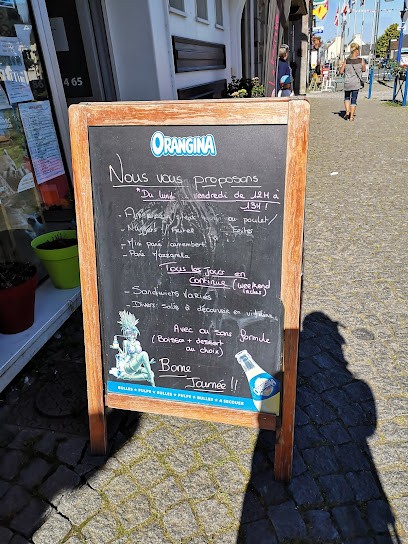 ORANGINA
Nous vous proposons
"Du lundi vendredi de 12H à
13H"
ou poulet/
- Nuggets
frites
- Mini pané camembert
- Pané Mozzarella
Tous les jours en
continue (weekend
inclus)
- Sandwiches variés
- Divers salés à découvrir en vitrine
Avec ou sans formule
(Boisson + dessert
au choix)
Bonne
Journée !!
BULLES • PULPE • BULLES • PULPE • BULLES • PULPE • BULLES • A SECOUER